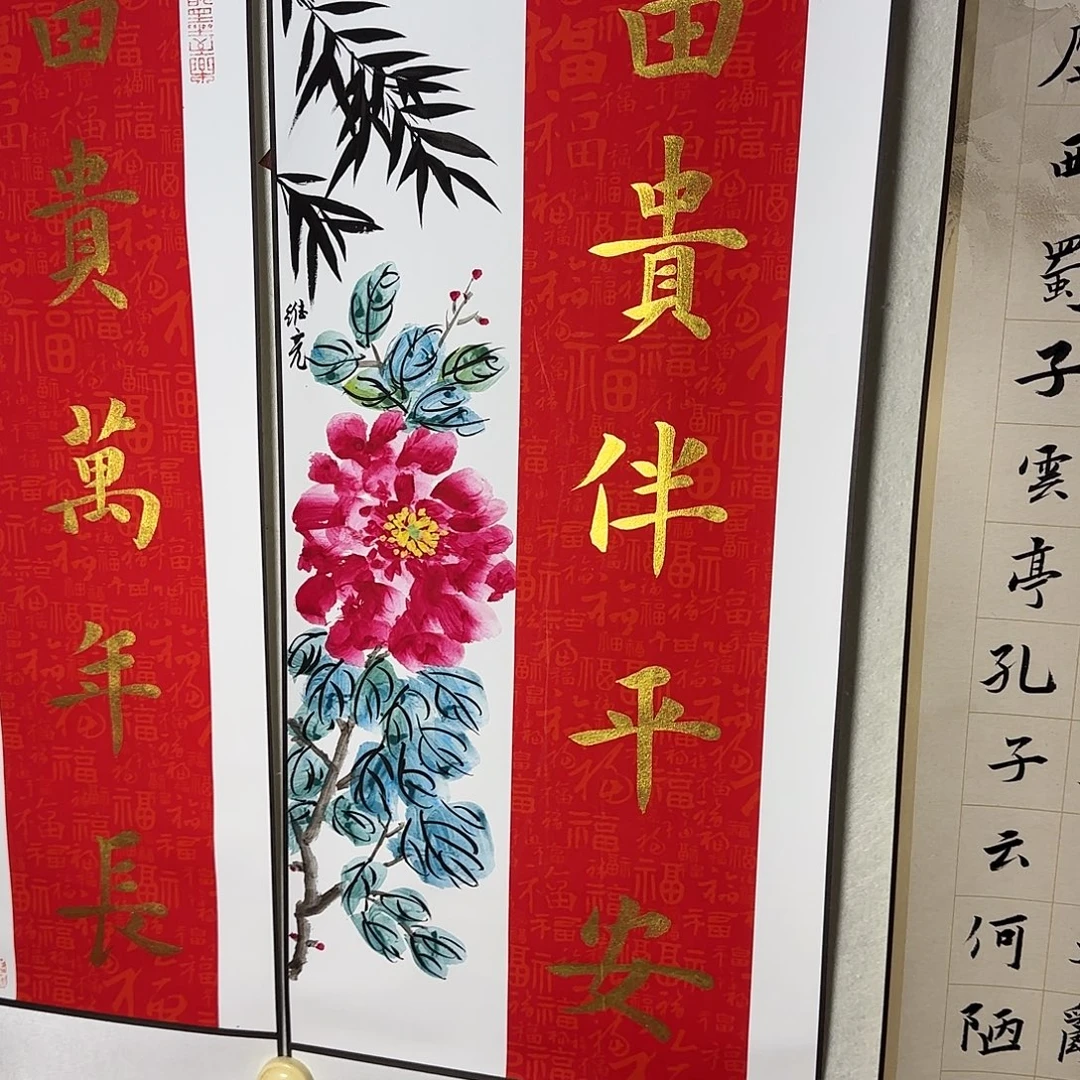 西蜀子雲亭孔子云何陋
富貴伴平安
维亮
富貴萬年長